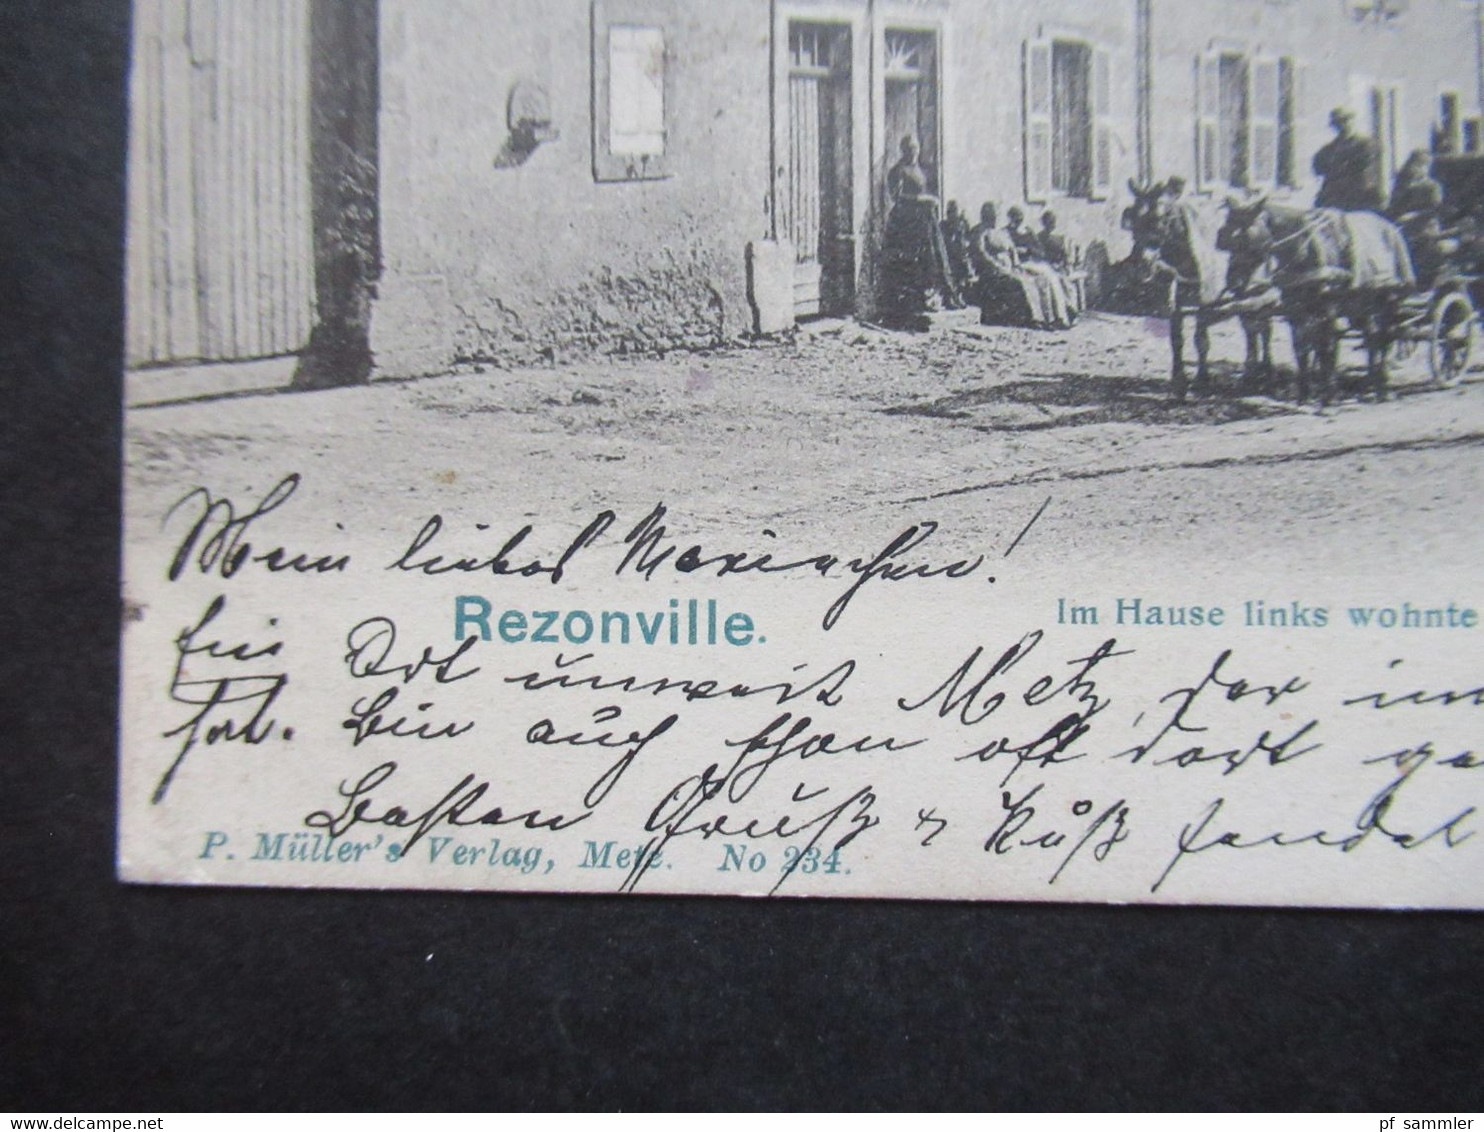 Mein liebes Mariechen!
Rezonville.
Im Hause links wohnte
Ein Ort unweit Metz, der im
hat. Bin auch schon oft dort ge
Besten Gruß & Kuß sendet
P. Müller's Verlag, Metz. No 234.
pf_sammler